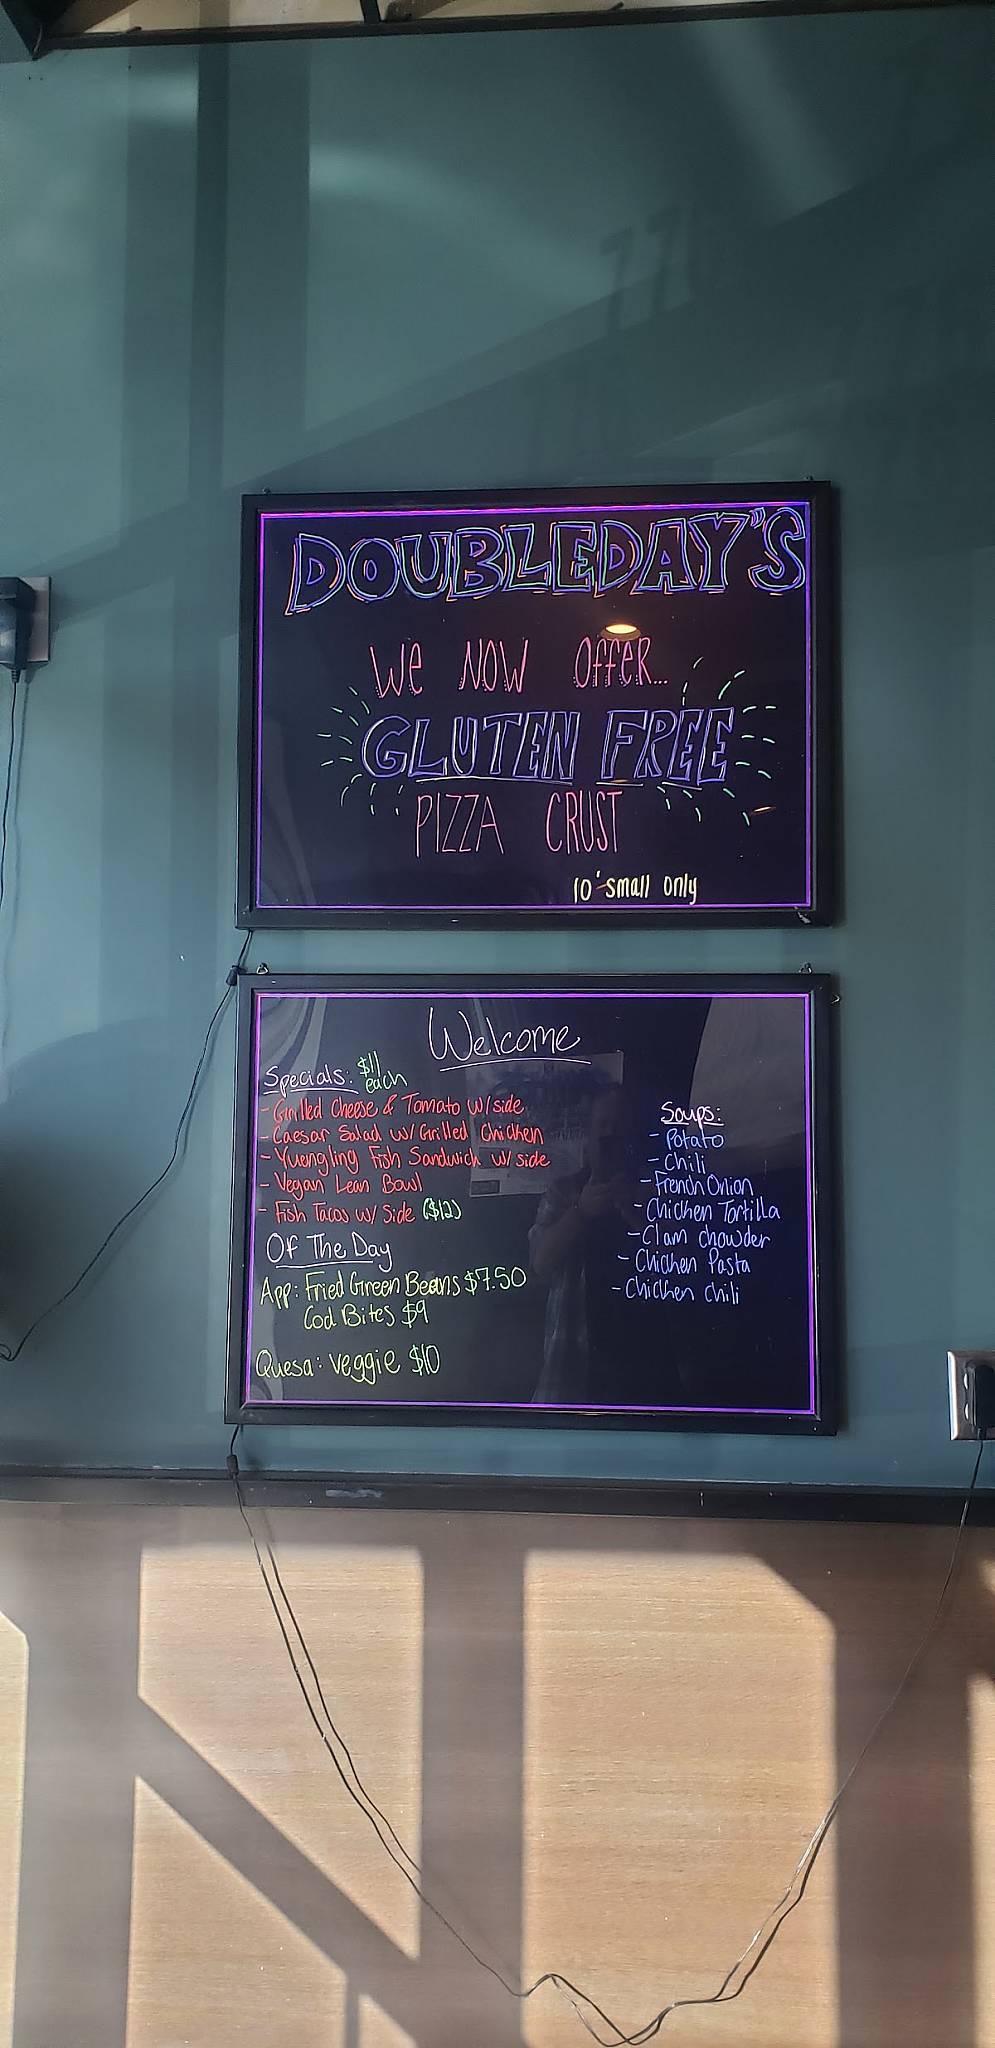 DOUBLEDAY'S
We NOW OffeR...
GLUTEN FREE
PIZZA CRUST
10' small only
Welcome
Specials: $11 each
- Grilled Cheese & Tomato w/side
- Caesar Salad w/ Grilled Chicken
- Yuengling Fish Sandwich w/ side
- Vegan Lean Bowl
- Fish Tacos w/ Side ($12)
Of The Day
App: Fried Green Beans $7.50
Cod Bites $9
Quesa: veggie $10
Soups:
- Potato
- Chili
- French Onion
- Chicken Tortilla
- Clam chowder
- Chicken Pasta
- Chicken chili